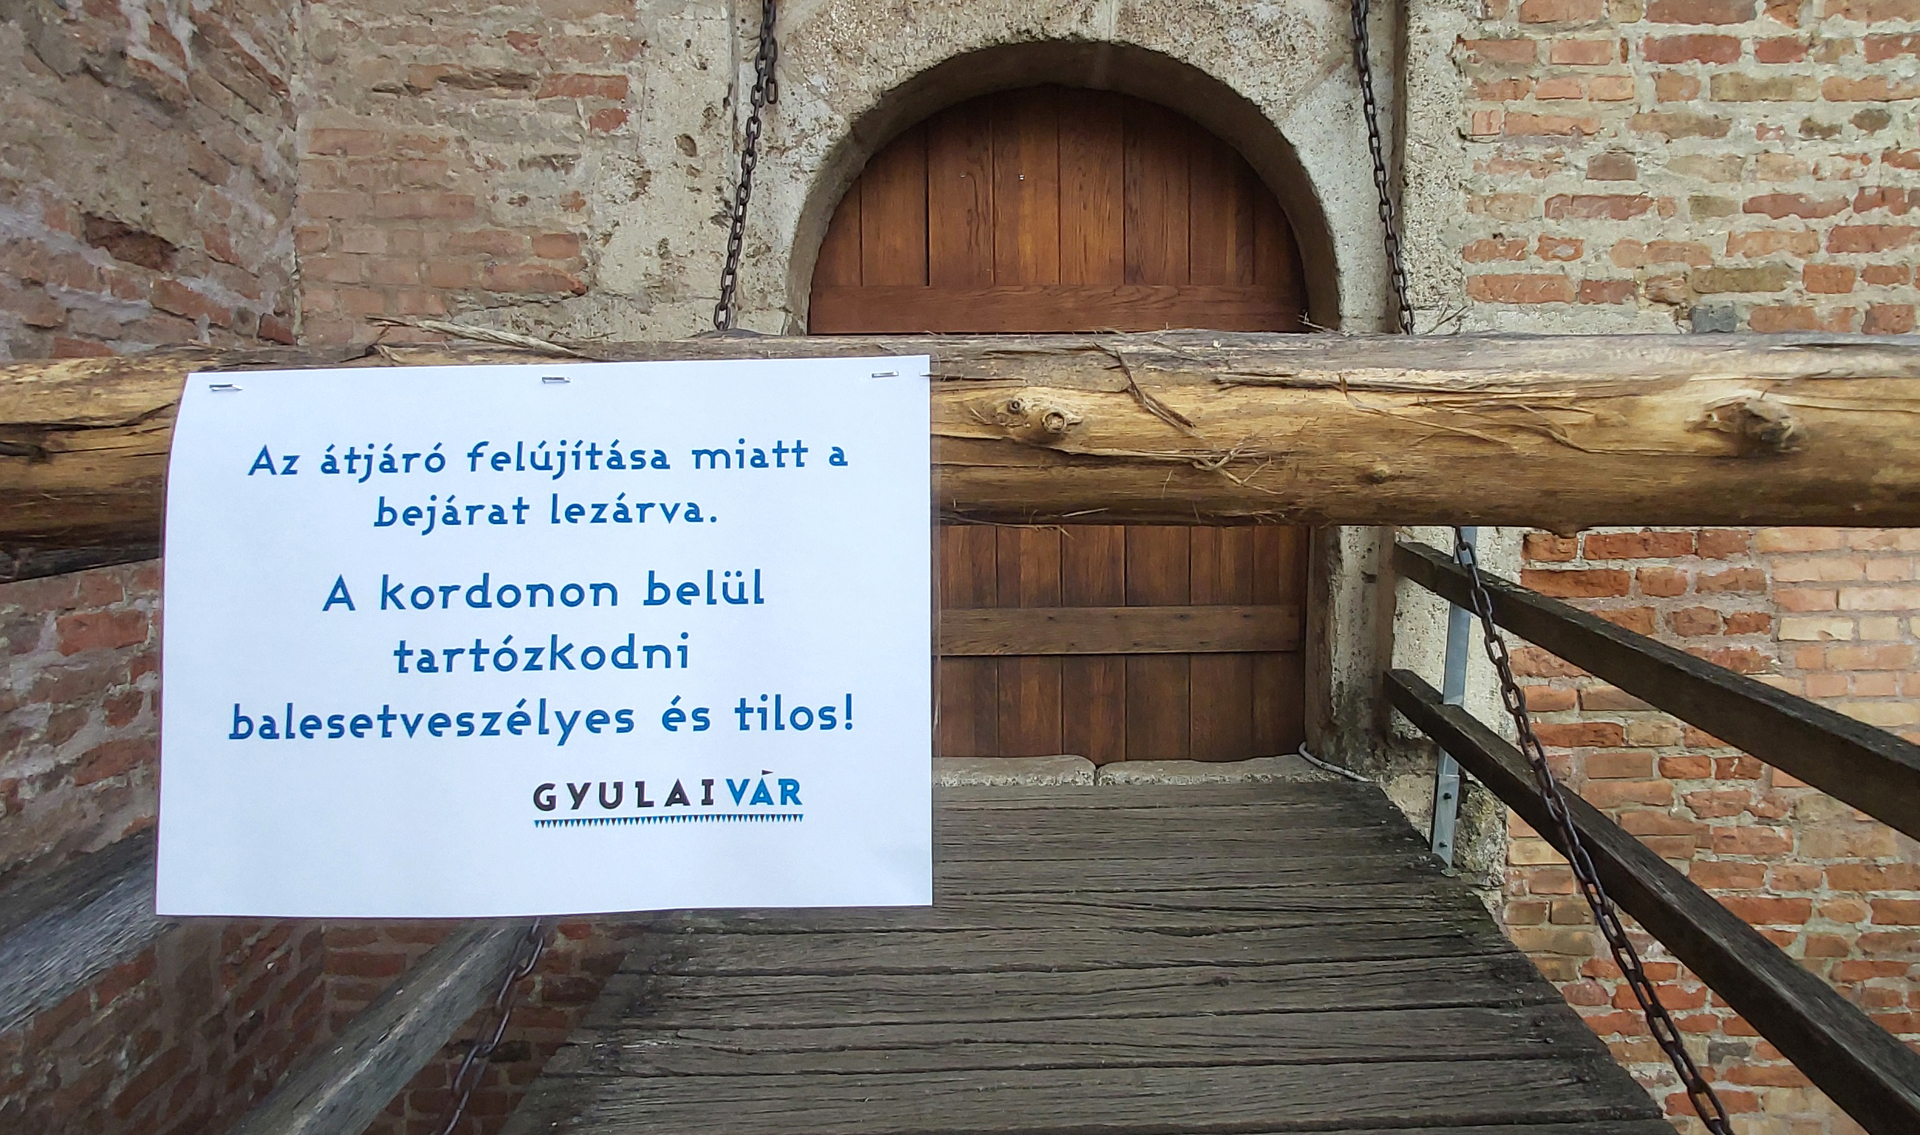 Az átjáró felújítása miatt a
bejárat lezárva.
A kordonon belül
tartózkodni
balesetveszélyes és tilos!
GYULAI VÁR